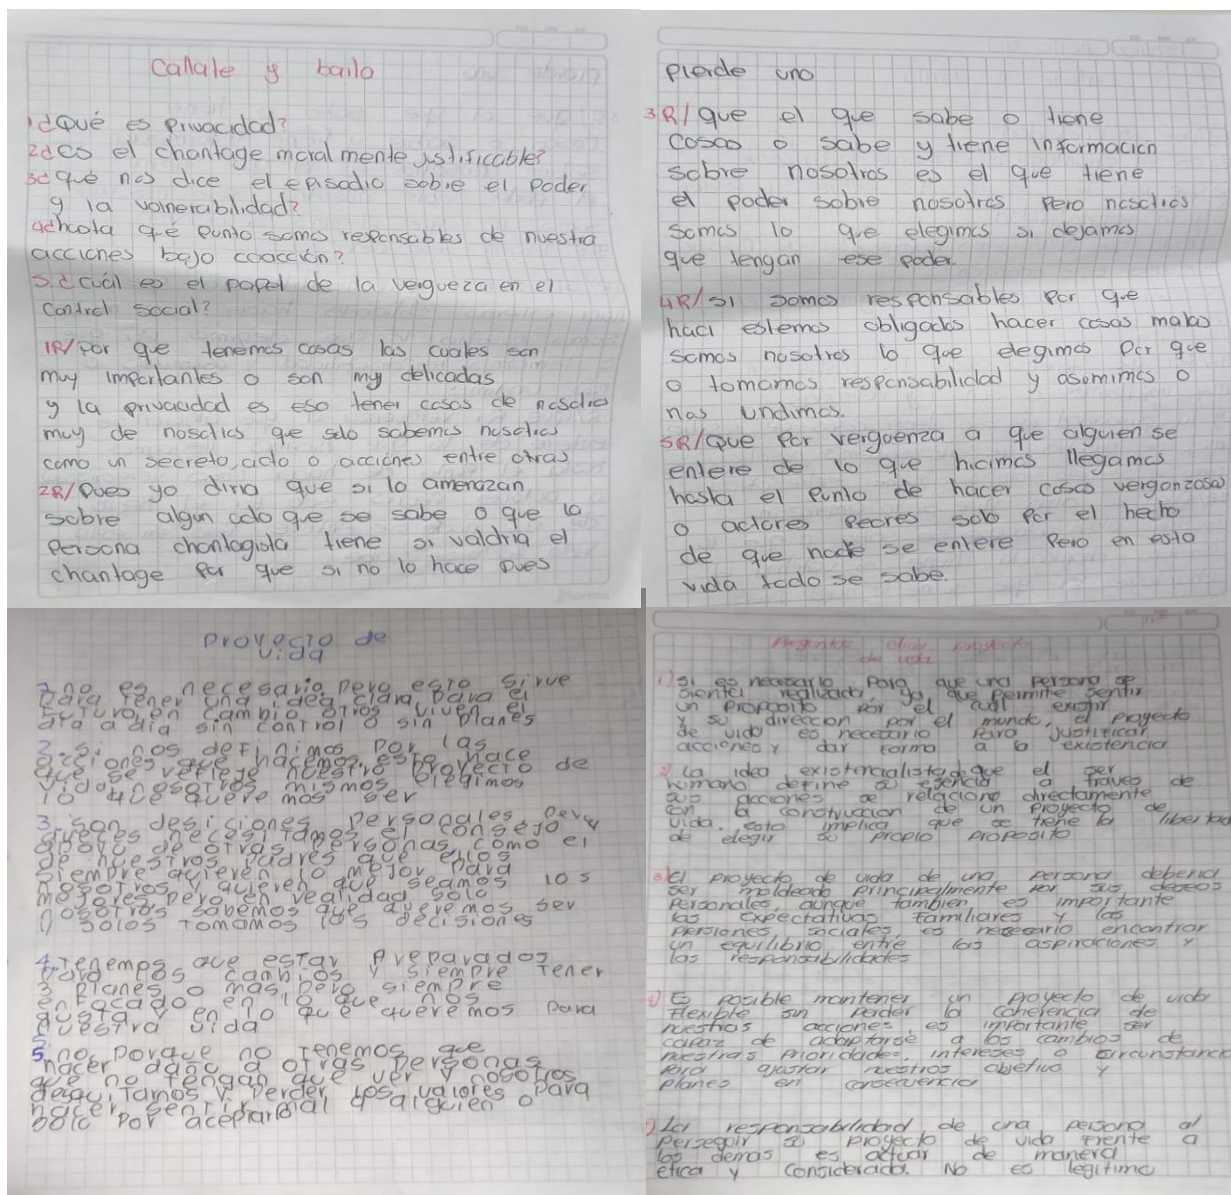 Callale y baila
1¿Qué es Privacidad?
2¿es el chantage moralmente justificable?
3¿que nos dice el episodio sobre el Poder
y la vulnerabilidad?
4¿hasta qué punto somos responsables de nuestra
acciones bajo coacción?
5.¿cuál es el papel de la vergueza en el
control social?
1R/ Por que tenemos cosas las cuales son
muy importantes o son my delicadas
y la privacidad es eso tener cosas de nosotros
muy de nosotros que solo sabemos nosotros
como un secreto, acto o acciones entre otras
2R/ Pues yo diria que si lo amenazan
sobre algun acto que se sabe o que la
persona chantagista tiene si valdria el
chantage por que si no lo hace pues
pierde uno
3R/ que el que sabe o tiene
cosas o sabe y tiene informacion
sobre nosotros es el que tiene
el poder sobre nosotros pero nosotros
somos lo que elegimos si dejamos
que tengan ese poder.
4R/ si somos responsables por que
haci estemos obligados hacer cosas malas
somos nosotros lo que elegimos por que
o tomamos responsabilidad y asumimos o
nos undimos.
5R/ Que por verguenza a que alguien se
entere de lo que hicimos llegamos
hasta el punto de hacer cosas vergonzosas
o actores peores solo por el hecho
de que nadie se entere pero en esta
vida todo se sabe.
Proyecto de
vida
1. no es necesario pero esto sirve
para tener una idea clara para el
futuro, en cambio otros viven el
dia a dia sin control o sin planes
2. si nos definimos por las
acciones que hacemos esto hace
que se refleje nuestro proyecto de
vida nosotros mismos elegimos
lo que queremos ser
3. son desiciones personales pero
aveces necesitamos el consejo y
apoyo de otras personas como el
de nuestros padres que ellos
siempre quieren lo mejor para
nosotros y quieren que seamos los
mejores pero en realidad solo
nosotros sabemos que queremos ser
y solos tomamos los decisiones
4. tenemos que estar preparados
para los cambios y siempre tener
3 planes o mas pero siempre
enfocado en lo que nos
gusta y en lo que queremos para
nuestra vida
5. no, porque no tenemos que
hacer daño a otras personas
que no tengan que ver y nosotros
desquitamos y perder los valores para
hacer sentir mal a alguien o
solo por aceptarlo
Preguntas proyecto
de vida
1) si es necesario para que una persona se
sienta realizada, ya que permite sentir
un proposito por el cual existir
y su direccion por el mundo, el proyecto
de vida es necesario para justificar
acciones y dar forma a la existencia
2) La idea existencialista de que el ser
humano define su esencia a traves de
sus acciones se relaciona directamente
con la construccion de un proyecto de
vida. esto implica que se tiene la libertad
de elegir su propio proposito
3) El proyecto de vida de una persona deberia
ser moldeado principalmente por sus deseos
personales, aunque tambien es importante
las expectativas familiares y las
persiones sociales, es necesario encontrar
un equilibrio entre las aspiraciones y
las responsabilidades
4) Es posible mantener un proyecto de vida
flexible sin perder la coherencia de
nuestras acciones, es importante ser
capaz de adaptarse a los cambios de
nuestras prioridades, intereses o circunstancia
para ajustar nuestros objetivo y
planes en consecuencia
5) La responsabilidad de una persona al
perseguir su proyecto de vida frente a
los demas es actuar de manera
etica y considerada. No es legitimo